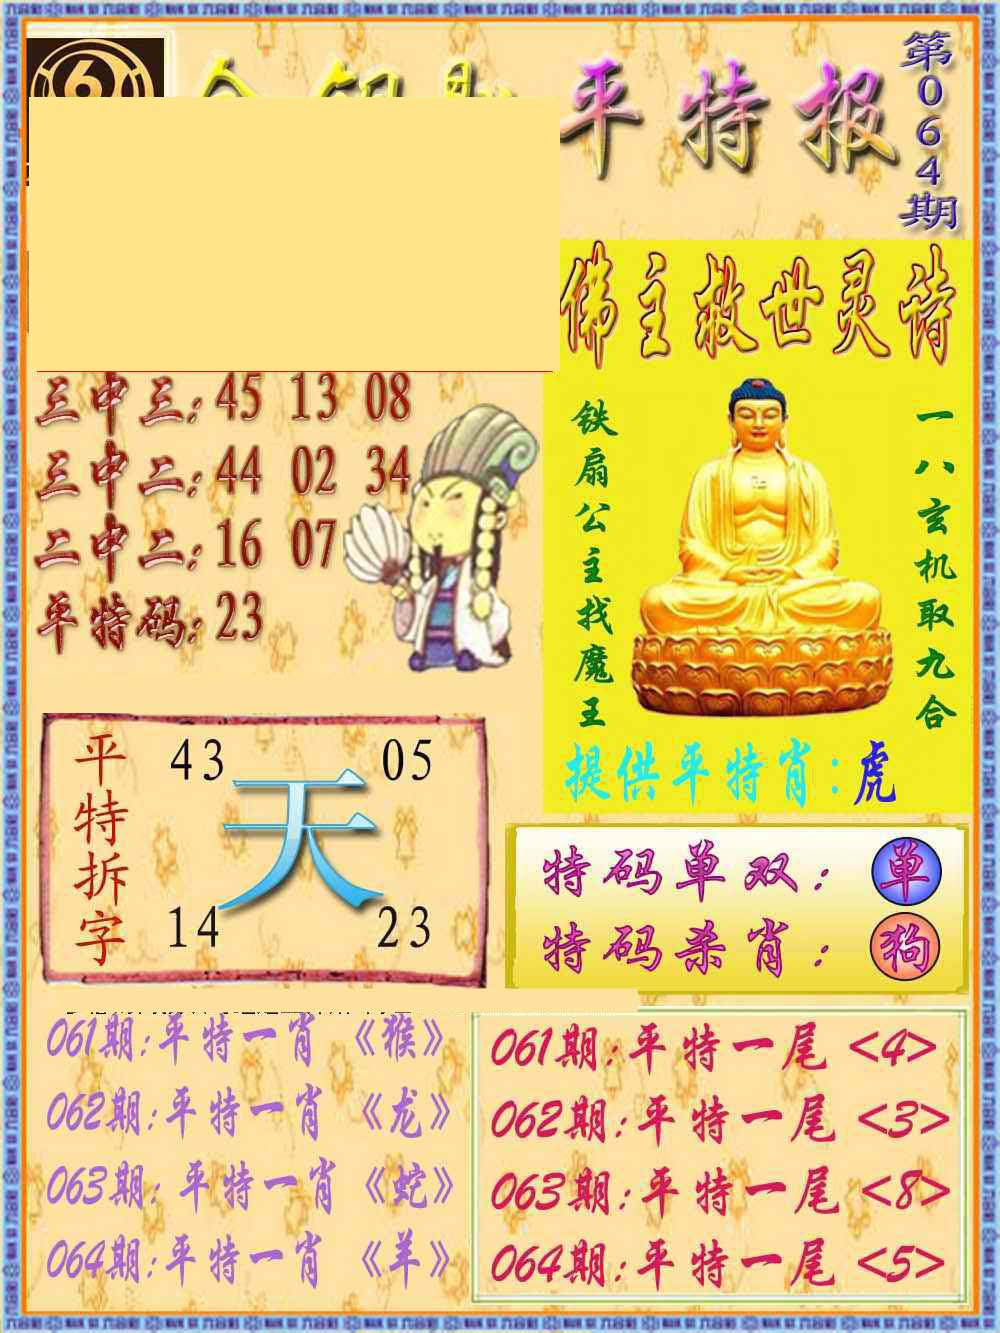 平特报
第064期
佛主救世灵诗
三中三:45 13 08
三中二:44 02 34
二中二:16 07
平特码:23
铁扇公主找魔王
一八玄机取九合
提供平特肖:虎
平特拆字
43 05
天
14 23
特码单双:单
特码杀肖:狗
061期:平特一肖《猴》
062期:平特一肖《龙》
063期:平特一肖《蛇》
064期:平特一肖《羊》
061期:平特一尾<4>
062期:平特一尾<3>
063期:平特一尾<8>
064期:平特一尾<5>